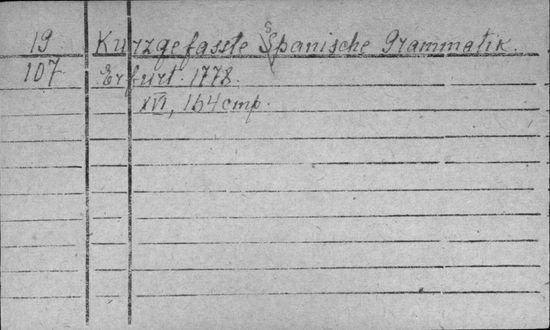 19 Kurzgefasste Spanische Grammatik.
107 Erfurt. 1778.
XVI, 164 стр.